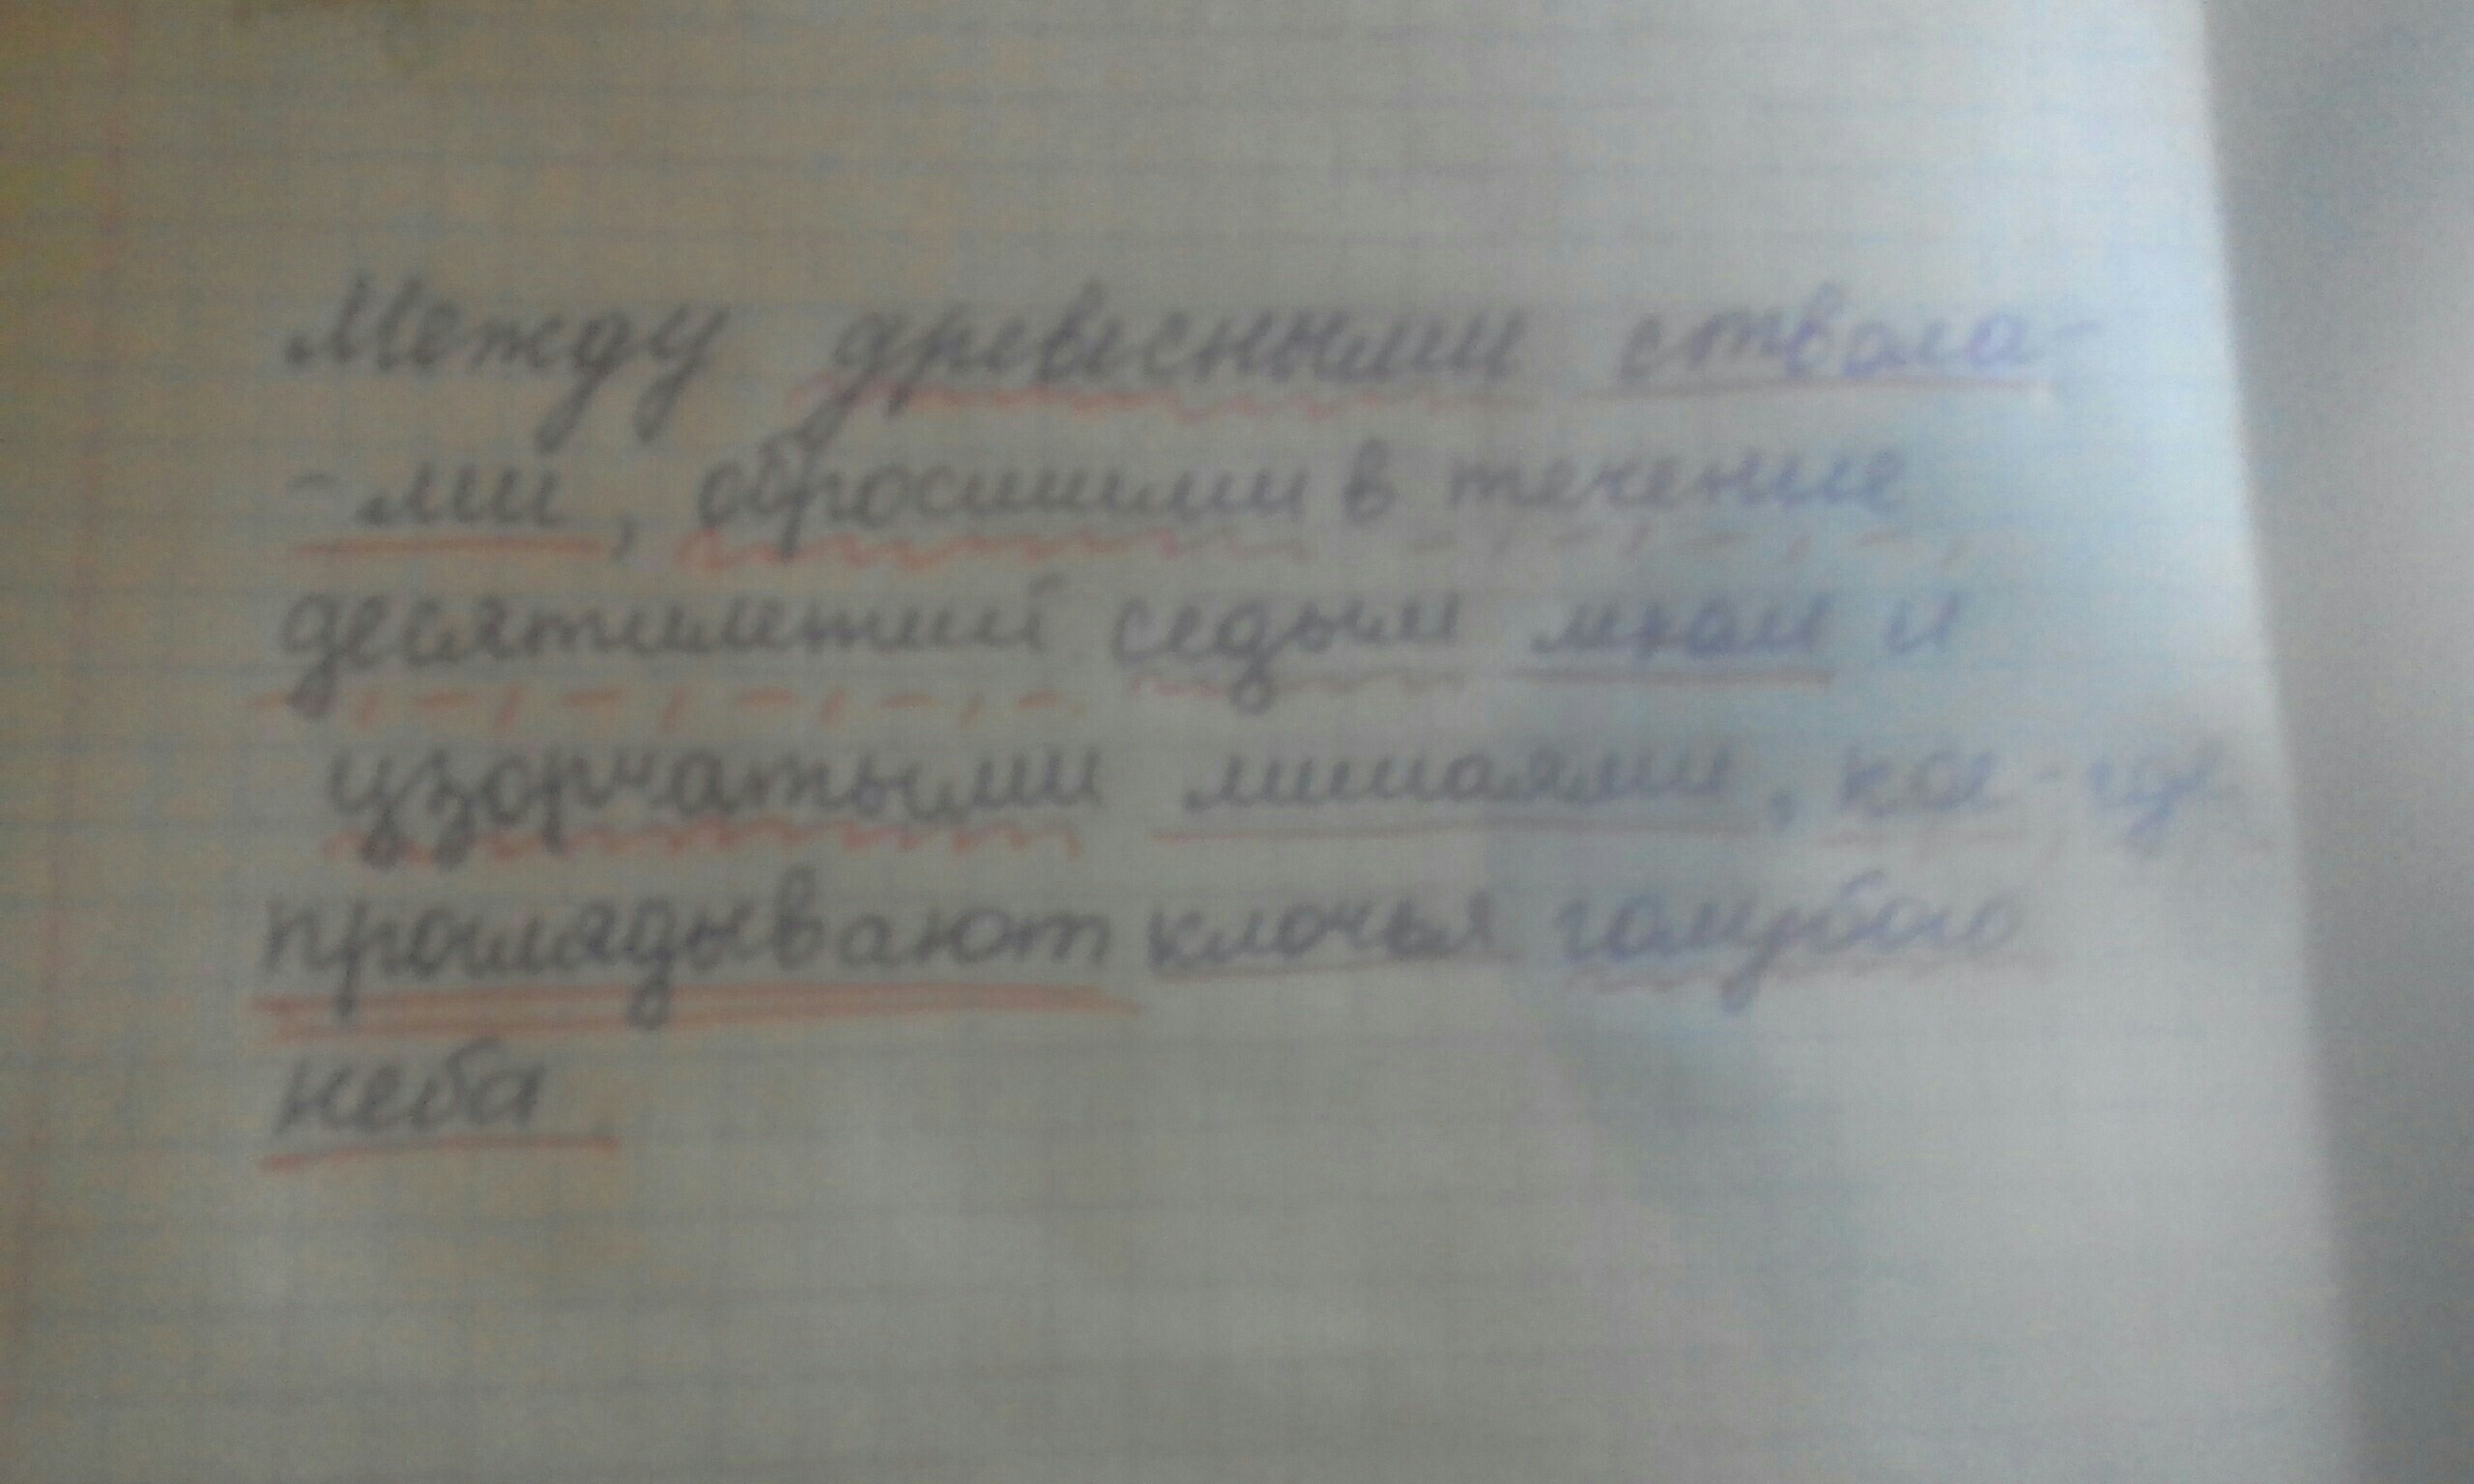 Между древесными ствола-
-ми, обросшими в течение
десятилетий седым мхом и
узорчатыми лишаями, кое-где
проглядывают клочья голубого
неба